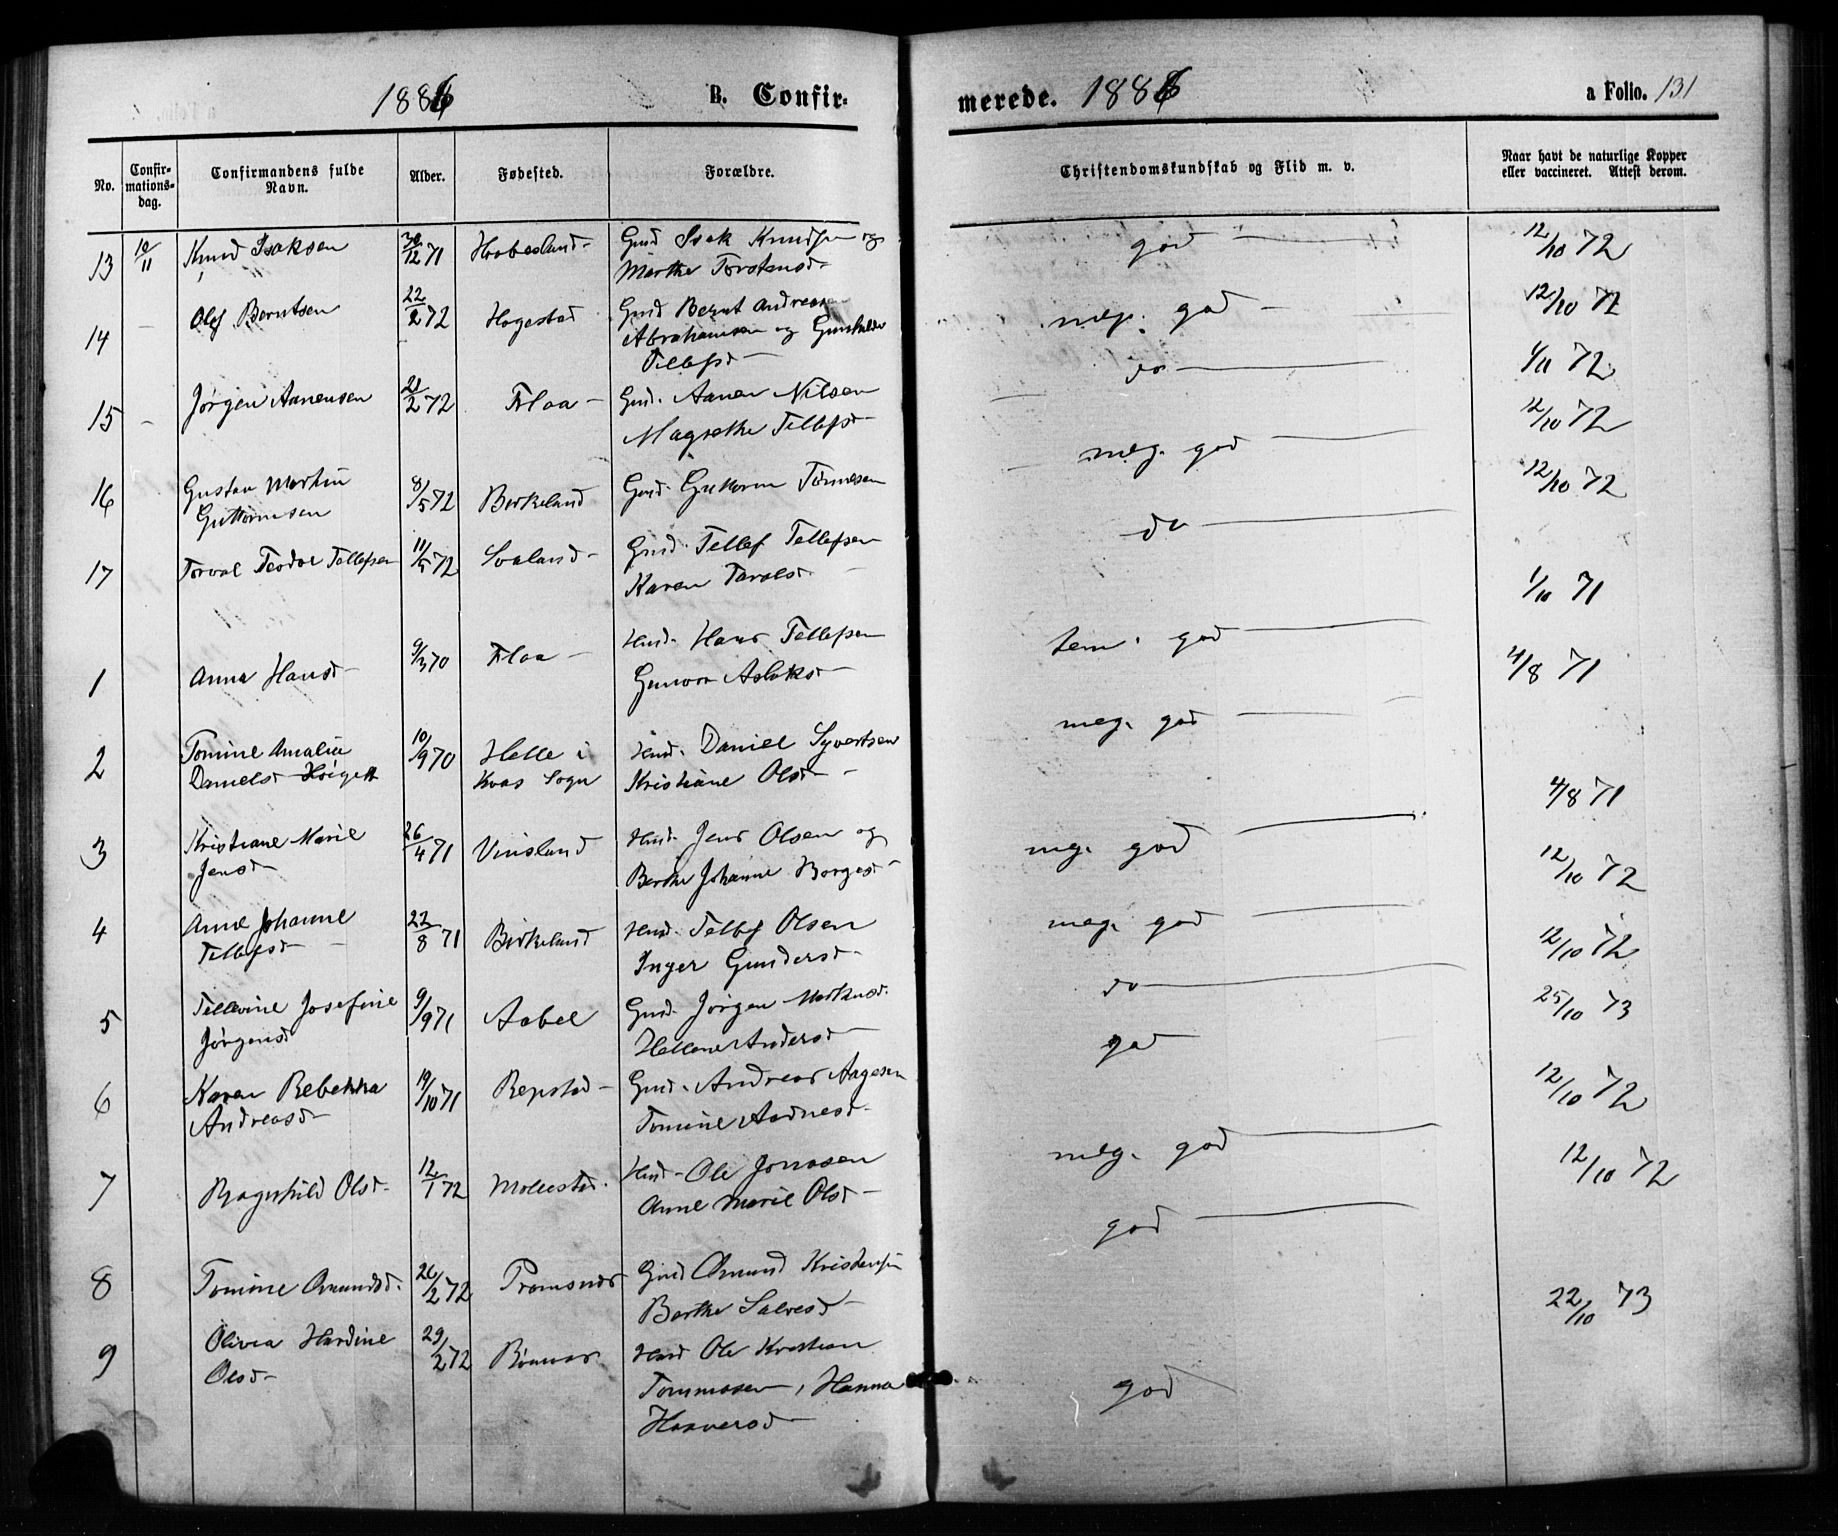 1886 B. Confir-
merede. 1886 a Folio. 131
No. Confir-mations-dag. Confirmandens fulde Navn. Alder. Fødested. Forældre. Christendomskundskab og Flid m. v. Naar havt de naturlige Kopper eller vaccineret. Attest derom.
13 10/11 Knud Isaksen /12 71 Gmd Isak Knudsen og god 12/10 72
Marthe Torstensd-
14 - Olef Berntsen 22/2 72 Hogestad Gmd Bernt Andreas meg. god - 12/10 72
Abrahamsen og Gunhilde
Tellefsd -
15 - Jørgen Aanensen /2 72 Flaa - Gmd. Aanen Nilsen do 4/11 72
Magrethe Tellefsd -
12/10 72
16 Gustav Martin 8/5 72 Birkeland Gmd. Guttorm Tønnesen meg. god 12/10 72
Guttormsen
17 Torval Teodor Tellefsen 11/5 72 Soaland - Gmd. Tellef Tellefsen do
Karen Tarolsd. - 1/10 71
1 Anna Hansd - 9/3 70 Flaa - Hmd. Hans Tellefsen tem. god 4/8 71
Gunvor Aslaksd -
2 Tomine Amalia 10/9 70 Helle i Hmd. Daniel Syvertsen meg. god
Danielsd Kvas Sogn Kristiane Olsd - 4/8 71
3 Kristiane Marie 26/4 71 Vinsland Hmd. Jens Olsen og mg. god
Jensd - Berthe Johanne Borgesd 12/10 72
4 Anne Johanne 22/8 71 Birkeland Hmd. Tellef Olsen meg. god
Tellefsd - Inger Gundersd - 12/10 72
5 Tellevine Josefine 9/9 71 Aabel Gmd. Jørgen do 25/10 73
Jørgensd Hellene Andersd -
6 Karen Rebekka 19/10 71 Repstad - Gmd. Andreas Aagesen god 12/10 72
Andreasd - Tomine Aadnesd -
7 Ragnhild Olsd - 12/1 72 Mollestad. Hmd - Ole Jonasen meg. god 12/10 72
Anne Marie Olsd -
8 Tomine Omundsd. 26/2 72 Tromsnes Gmd Omund Kristensen god
Berthe Salvesd - 22/10 73
9 Olivia Hardine 29/2 72 Hmd Ole Kristian
Olsd - Tommasen, Hanna god
Haaversd -